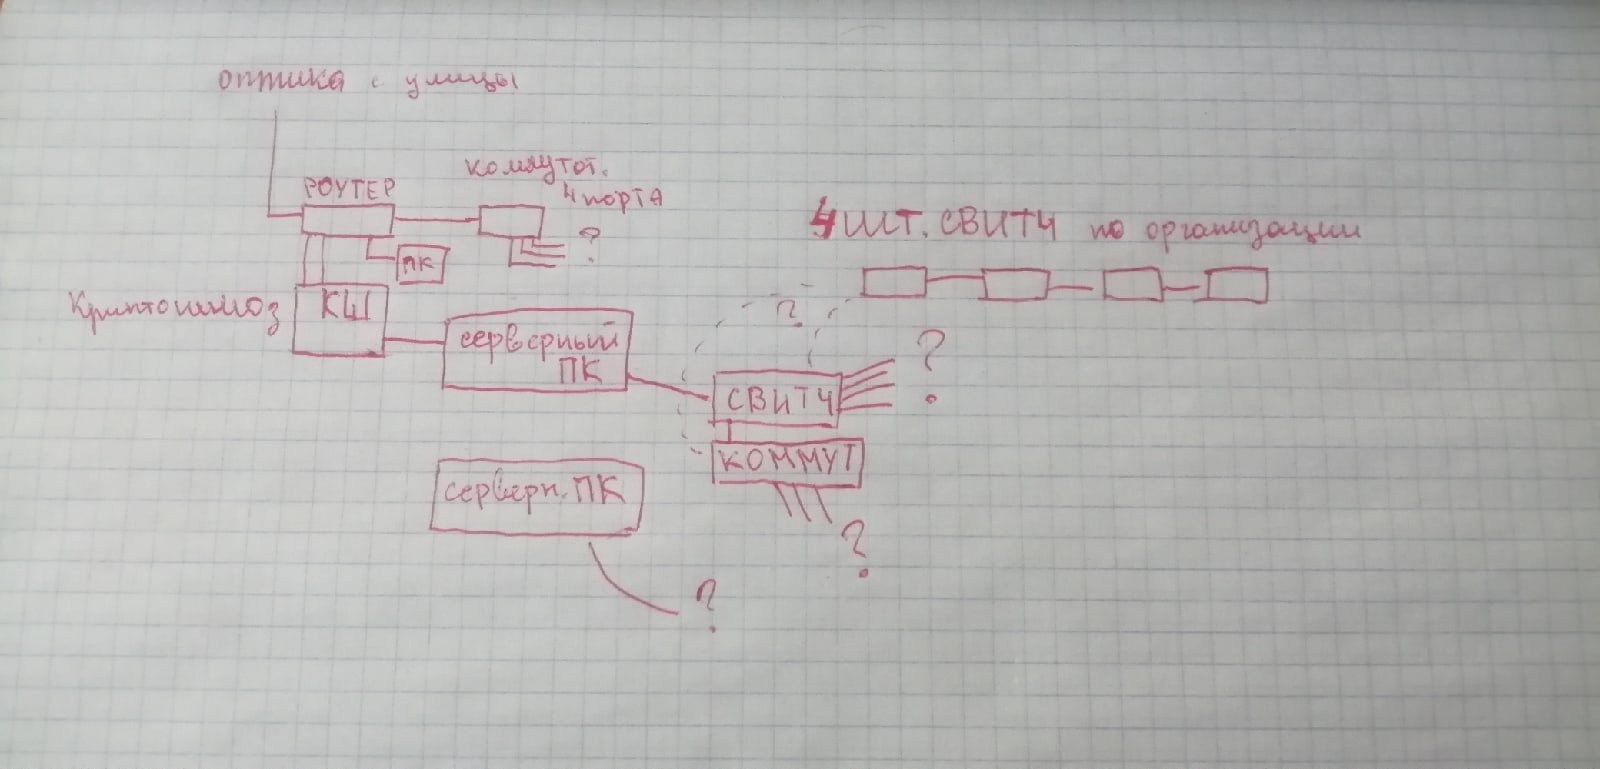 оптика с улицы
коммутат.
4 порта
РОУТЕР
?
ПК
4 ШТ. СВИТЧ по организации
Криптошлюз
КШ
?
серверный
ПК
?
СВИТЧ
КОММУТ
серверн. ПК
?
?